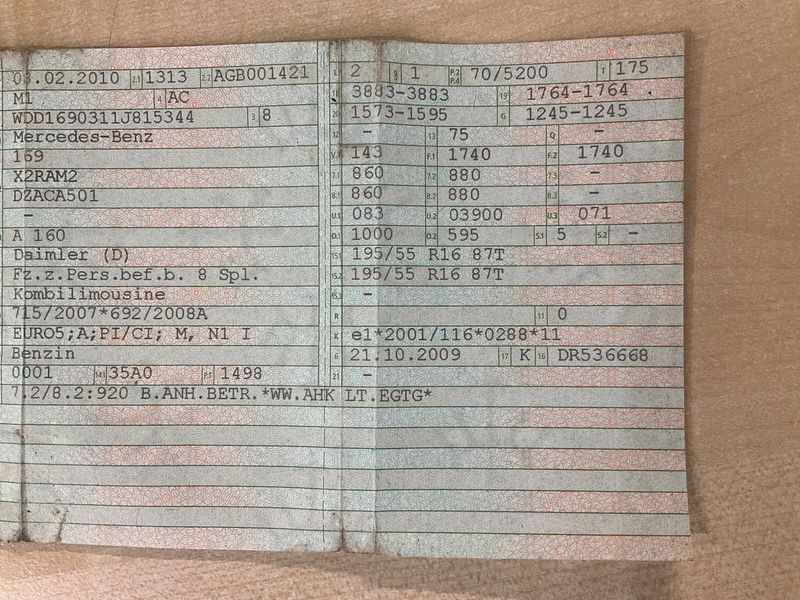 03.02.2010 2.1 1313 2.2 AGB001421 L 2 9 1 P.2 P.4 70/5200 T 175
M1 4 AC 18 3883-3883 19 1764-1764
WDD1690311J815344 3 8 20 1573-1595 G 1245-1245
Mercedes-Benz 12 - 13 75 Q -
169 V.7 143 F.1 1740 F.2 1740
X2RAM2 7.1 860 7.2 880 7.3 -
DZACA501 8.1 860 8.2 880 8.3 -
- U.1 083 U.2 03900 U.3 071
A 160 O.1 1000 O.2 595 S.1 5 S.2 -
Daimler (D) 15.1 195/55 R16 87T
Fz.z.Pers.bef.b. 8 Spl. 15.2 195/55 R16 87T
Kombilimousine 15.3 -
715/2007*692/2008A R 11 0
EURO5;A;PI/CI; M, N1 I K e1*2001/116*0288*11
Benzin 6 21.10.2009 17 K 16 DR536668
0001 14.1 35A0 P.1 1498 21 -
7.2/8.2:920 B.ANH.BETR.*WW.AHK LT.EGTG*